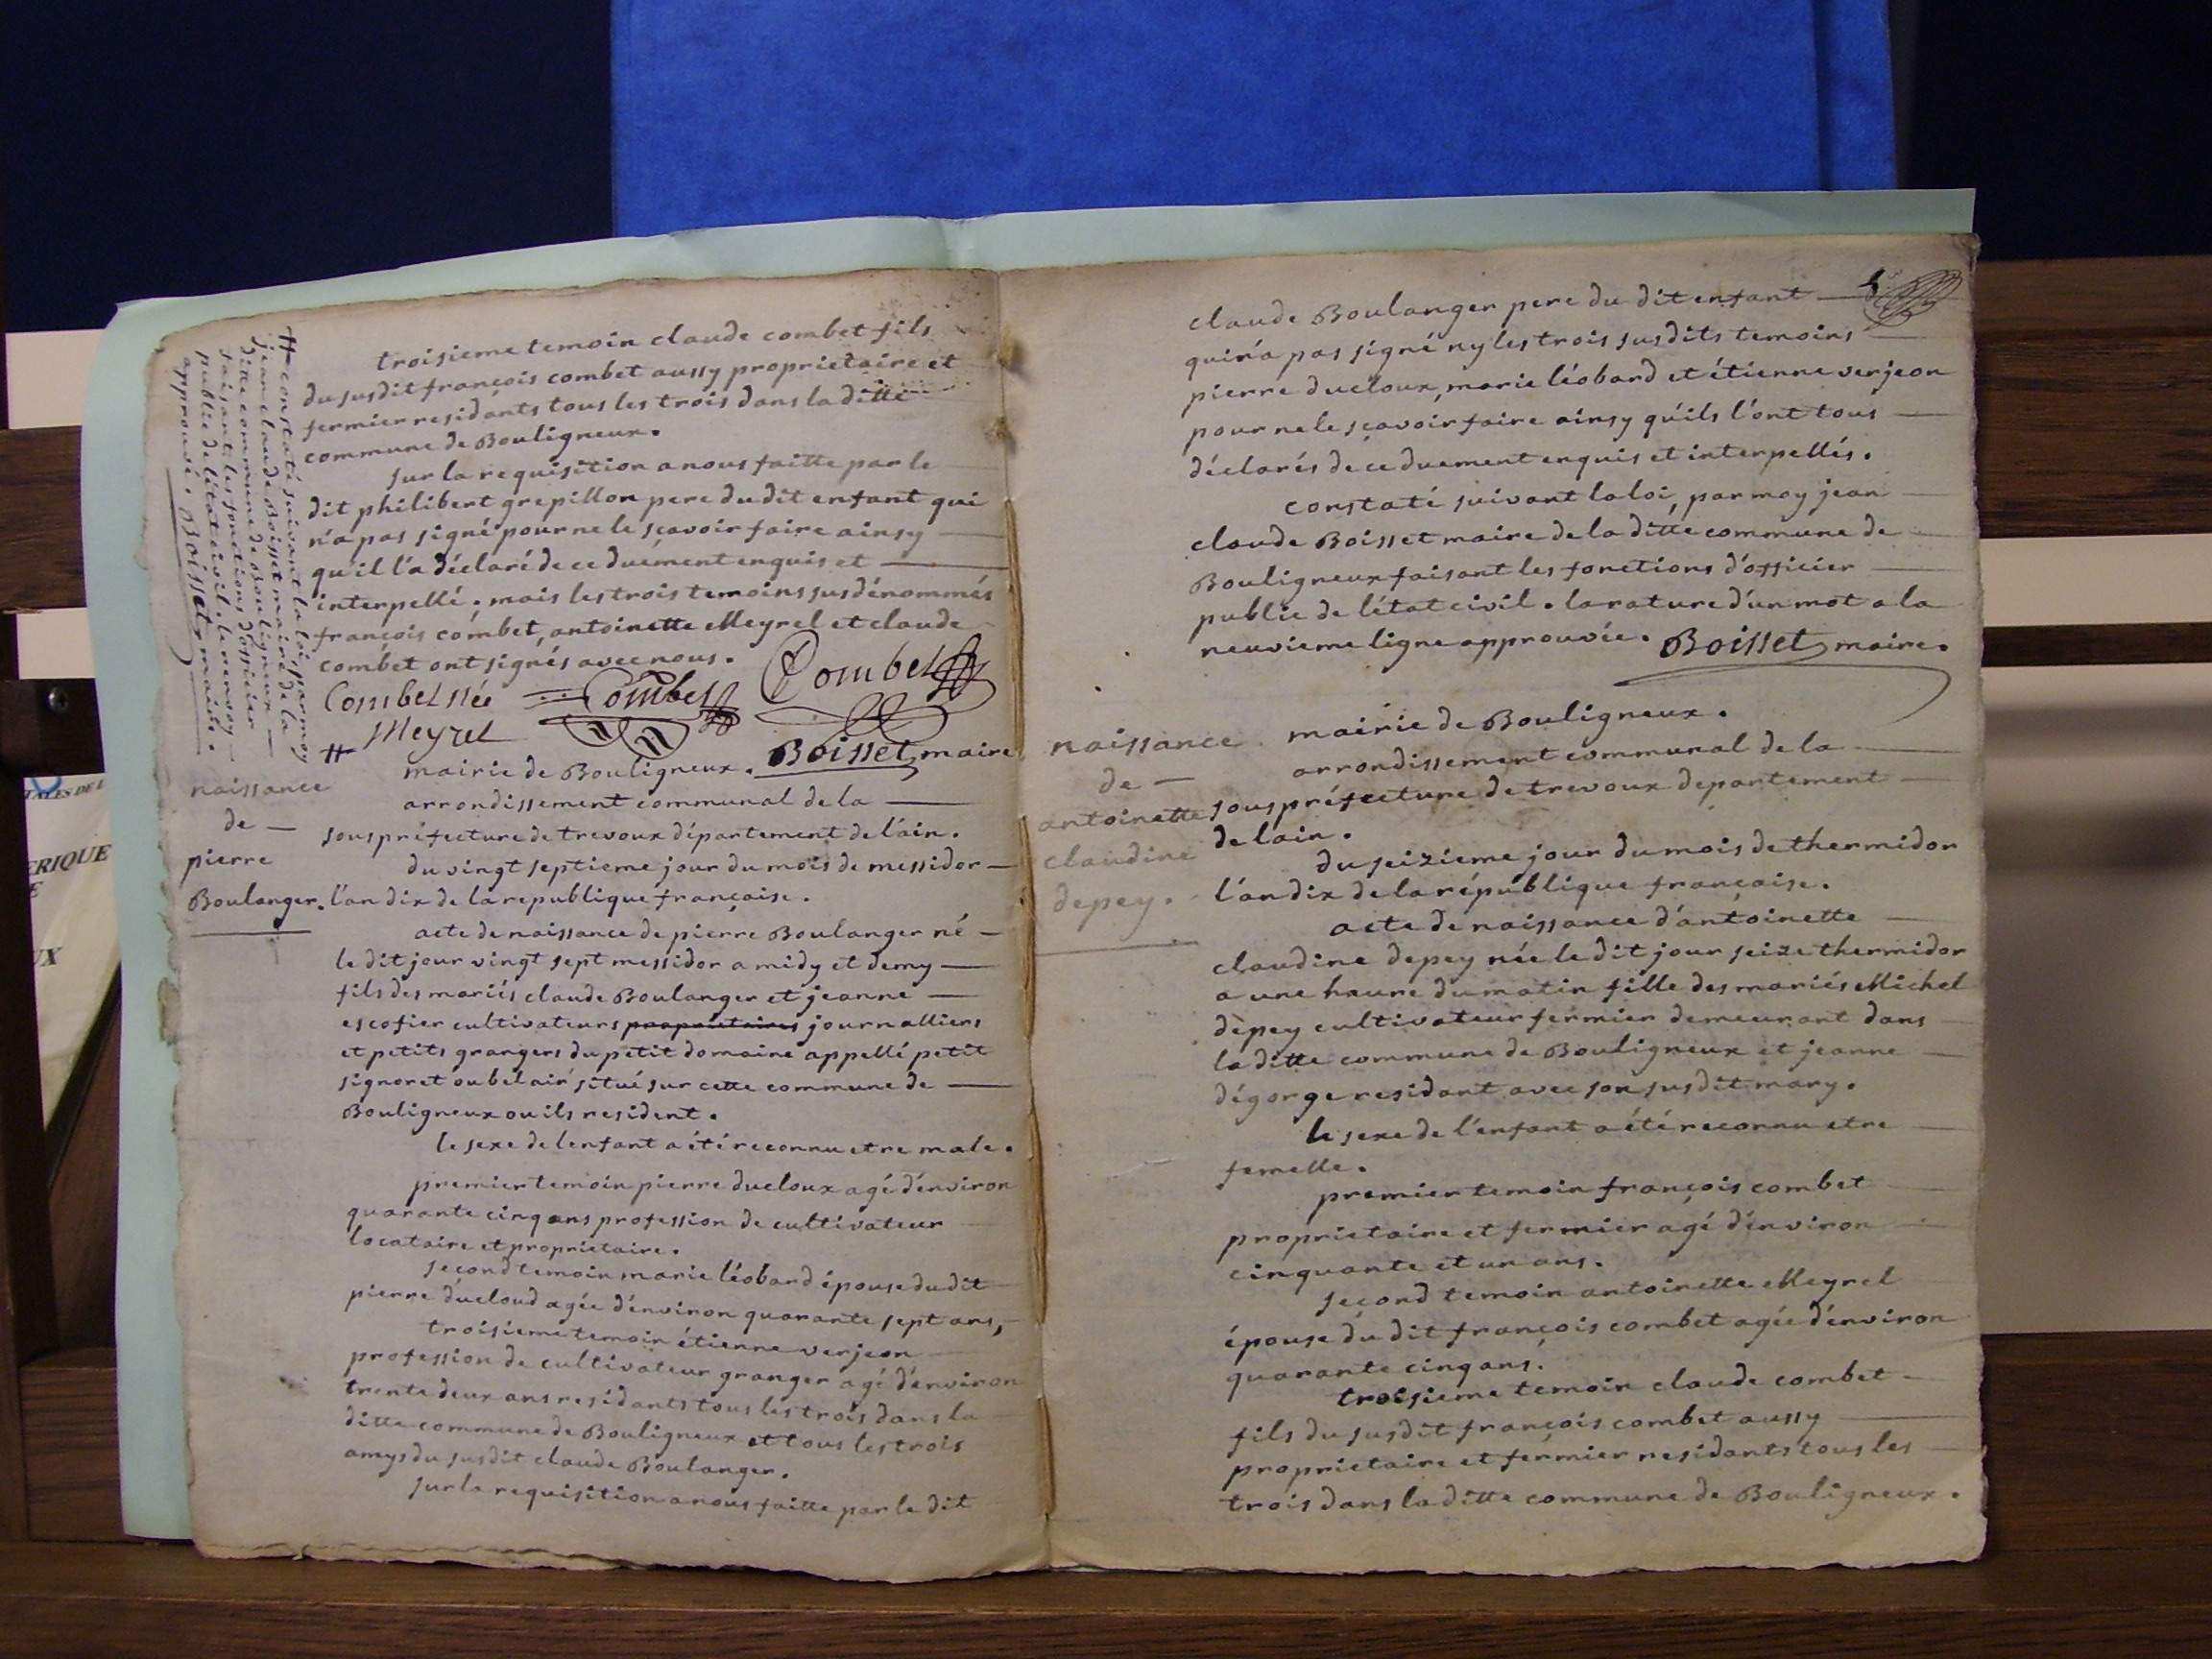 troisieme temoin claude combet fils
du susdit françois combet aussy proprietaire et
fermier residants tous les trois dans la ditte
commune de Bouligneux.
sur la requisition a nous faitte par le
dit philibert grepillon pere du dit enfant qui
n'a pas signé pour ne le sçavoir faire ainsy
qu'il l'a déclaré de ce duement enquis et
interpellé. mais les trois temoins susdénommés
françois combet, antoinette Meyrel et claude
combet ont signés avec nous.
Combet née
Meyrel
Combet
Combet
Boisset maire
# constaté suivant la loi, par moy
jean claude Boisset maire de la
ditte commune de Bouligneux
faisant les fonctions d'officier
public de l'état civil. le renvoy
approuvé. Boisset maire.
#
naissance
de
pierre
Boulanger.
mairie de Bouligneux.
arrondissement communal de la
sous préfecture de trevoux département de l'ain.
du vingt septieme jour du mois de messidor
l'an dix de la republique française.
acte de naissance de pierre Boulanger né
le dit jour vingt sept messidor a midy et demy
fils des mariés claude Boulanger et jeanne
escofier cultivateurs proprietaires journalliers
et petits grangers du petit domaine appellé petit
signoret ou bel air situé sur cette commune de
Bouligneux ou ils resident.
le sexe de lenfant a été reconnu etre male.
premier temoin pierre ducloux agé d'environ
quarante cinq ans profession de cultivateur
locataire et proprietaire.
second temoin marie léobard épouse du dit
pierre ducloud agée d'environ quarante sept ans,
troisieme temoin étienne verjeon
profession de cultivateur granger agé d'environ
trente deux ans residants tous les trois dans la
ditte commune de Bouligneux et tous les trois
amys du susdit claude Boulanger.
sur la requisition a nous faitte par le dit
claude Boulanger pere du dit enfant
qui n'a pas signé ny les trois susdits temoins
pierre ducloux, marie léobard et étienne verjeon
pour ne le sçavoir faire ainsy qu'ils l'ont tous
déclarés de ce duement enquis et interpellés.
constaté suivant la loi, par moy jean
claude Boisset maire de la ditte commune de
Bouligneux faisant les fonctions d'officier
public de l'état civil. la rature d'un mot a la
neuvieme ligne approuvée. Boisset maire.
naissance
de
antoinette
claudine
depey.
mairie de Bouligneux.
arrondissement communal de la
sous préfecture de trevoux departement
de lain.
du seizieme jour du mois de thermidor
l'an dix de la république française.
acte de naissance d'antoinette
claudine depey née le dit jour seize thermidor
a une heure du matin fille des mariés Michel
depey cultivateur fermier demeurant dans
la ditte commune de Bouligneux et jeanne
dégorge residant avec son susdit mary.
le sexe de l'enfant a été reconnu etre
femelle.
premier temoin françois combet
proprietaire et fermier agé d'environ
cinquante et un ans.
second temoin antoinette Meyrel
épouse du dit françois combet agée d'environ
quarante cinq ans.
troisieme temoin claude combet
fils du susdit françois combet aussy
proprietaire et fermier residants tous les
trois dans la ditte commune de Bouligneux.